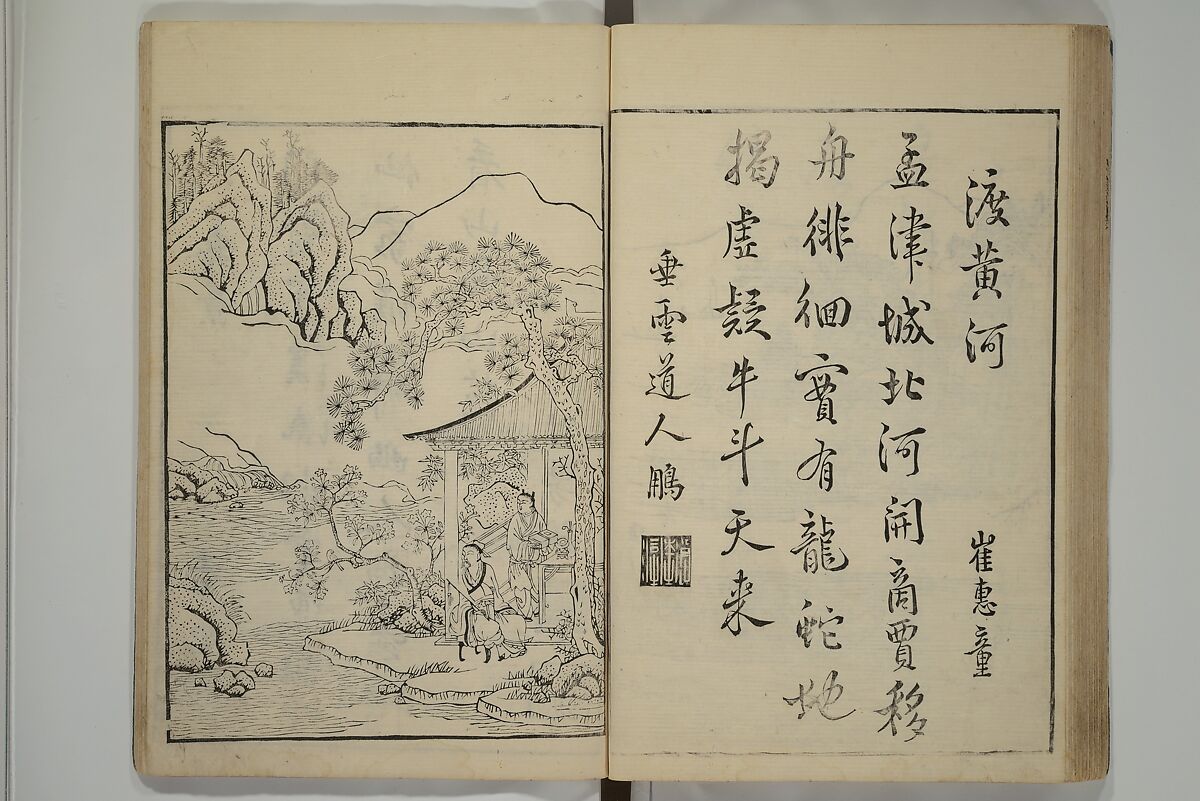 渡黄河 崔惠童
孟津城北河開商賈移
舟徘徊實有龍蛇地
揭虛疑牛斗天来
垂雲道人鵬